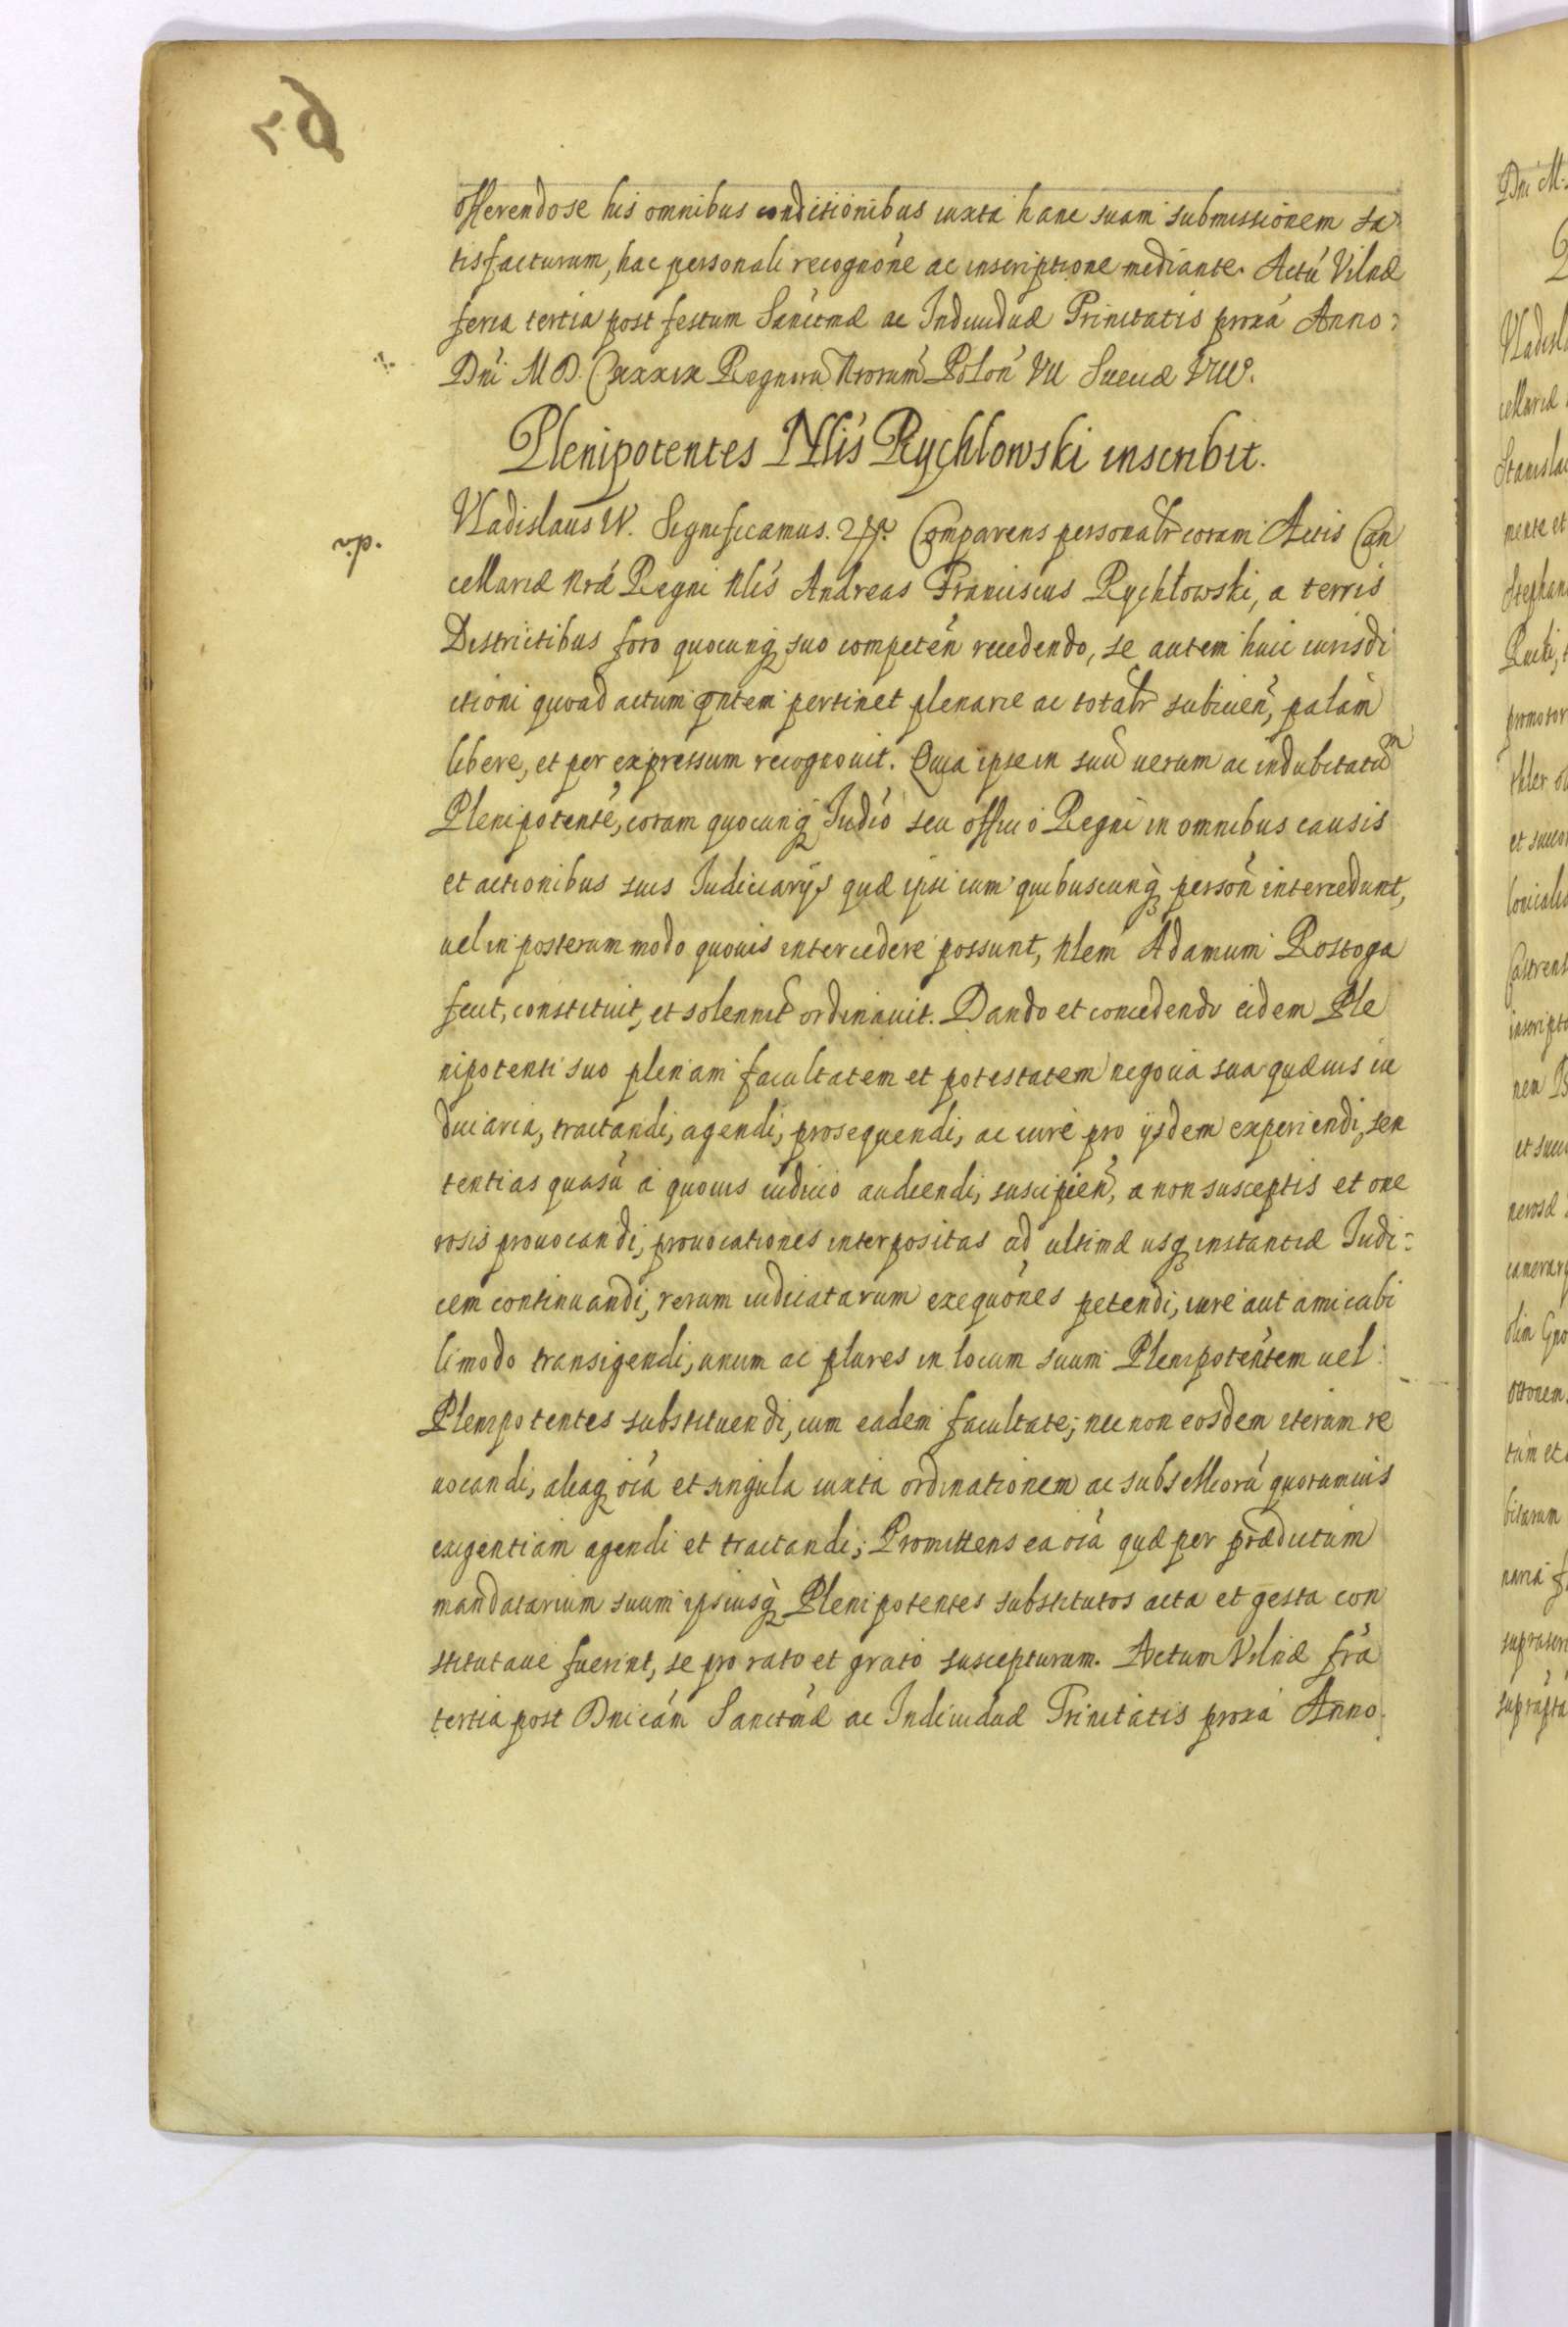 offerendo se his omnibus conditionibus iuxta hanc suam submissionem sa-
tisfacturum, hac personali recognóne ac inscriptione mediante. Actú Vilnæ
feria tertia post festum Sanctmæ ac Indiuiduæ Trinitatis proxá Anno:
Dńi M D. CXXXIX Regnorú Nrorum Polon VII Sueciæ VIII.
Plenipotentes Nlis Rychlowski inscribit.
Vladislaus IV. Significamus. Comparens personalr coram Actis Can
cellariæ Nræ Regni Nlis Andreas Franciscus Rychłowski, a terris
Districtibus foro quocunq suo competén recedendo, se autem huic iurisdi
ctioni quoad actum pntem pertinet plenarie ac totalr subiicién, palám
libere, et per expressum recognouit. Quia ipse in suú uerum ac indubitatúm
Plenipotenté, coram quocunq Iudió seu officio Regni in omnibus causis
et actionibus suis Iudiciarijs quæ ipsi cum quibuscunq person intercedunt,
uel in posterum modo quouis intercedere possunt, Nlem Adamum Rostoga
fecit, constituit, et solennitr ordinauit. Dando et concedendo eidem Ple
nipotenti suo plenam facultatem et potestatem negocia sua quæuis iu
diciaria, tractandi, agendi, prosequendi, ac iure pro ijsdem experiendi, sen
tentias quasú á quouis iudicio audiendi, suscipien, a non susceptis et one
rosis prouocandi, prouocationes interpositas ad ultimæ usq instantiæ Iudi:
cem continuandi, rerum iudicatarum exequónes petendi, iure aut amicabi
li modo transigendi, unum ac plures in locum suum Plenipotentem uel
Plenipotentes substituendi, cum eadem facultate; nec non eosdem iterum re
uocandi, aliaq oiá et singula iuxta ordinationem ac subselliorú quorumuis
exigentiam agendi et tractandi; Promittens ea oiá quæ per prædictum
mandatarium suum ipsiusq Plenipotentes substitutos acta et gesta con
stitutaue fuerint, se pro rato et grato suscepturum. Actum Vilnæ frá
tertia post Dnicám Sanctmæ ac Indiuiduæ Trinitatis proxá Anno.